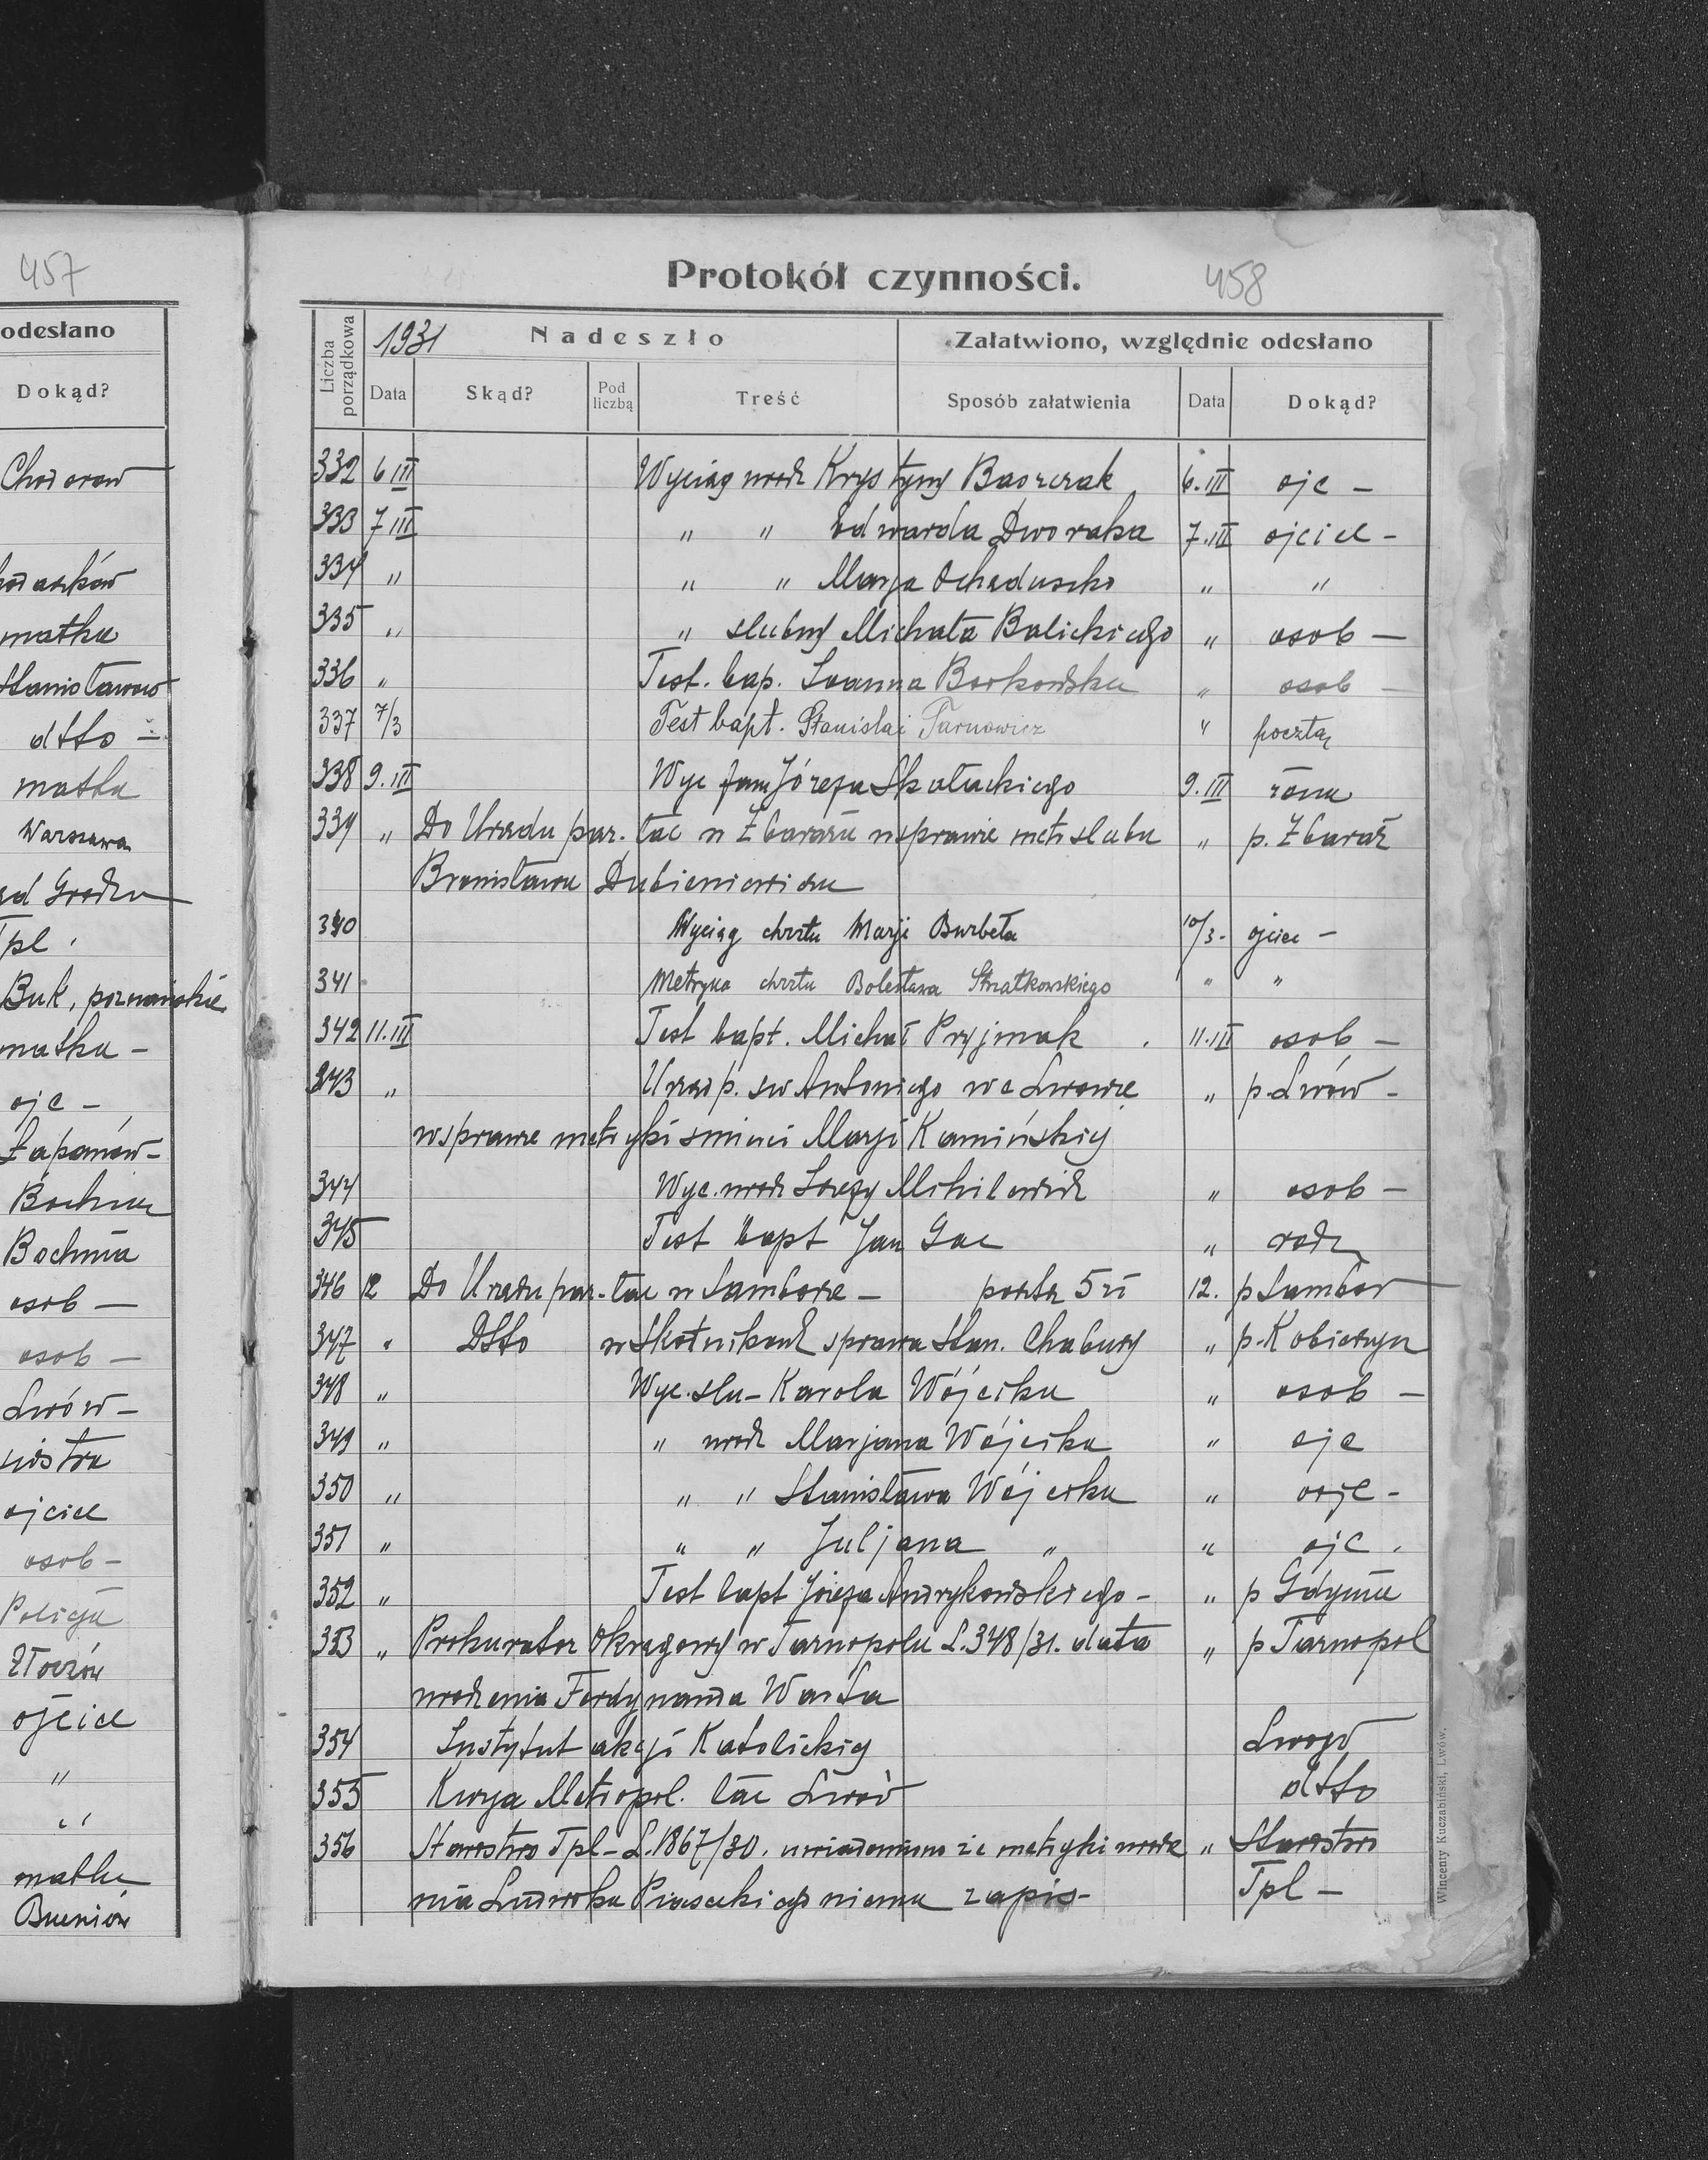 457
odesłano
Dokąd?
Chodorow
matka
Stanisławow
dtto -
matka
Warszawa
Tpl.
Buk, poznańskie
matka -
ojc -
Łapanów -
Bochnia
Bochnia
osob -
osob -
Lwów -
siostra
ojciec
osob -
Policja
Złoczów
ojciec
"
"
matka
Bucniów
Protokół czynności. 458
Liczba porządkowa
1931 Nadeszło
Załatwiono, względnie odesłano
Data Skąd? Pod liczbą Treść Sposób załatwienia Data Dokąd?
332 6 III Wyciąg urodz Krystyny 6.III ojc -
333 7 III " " Edwarda Dworaka 7.III ojciec -
334 " " " Marja " "
335 " " slubny Michała Balickiego " osob -
336 " Test. bap. Joanna Borkowska " osob -
337 7/3 Test bapt. Stanislai Tarnowicz " pocztą
338 9.III Wyc Józefa Skałackiego 9.III żona
339 " Do Urzędu par. łac w Zbarażu w sprawie metr slubu " p. Zbaraż
Bronisława
340 Wyciąg chrztu Marji Burbeła 10/3 - ojciec -
341 Metryka chrztu Bolesława Strzałkowskiego " "
342 11.III Test bapt. Michał Pryjmak 11.III osob -
343 " Urząd p. sw Antoniego we Lwowie " p. Lwów -
w sprawie metryki smierci Marji Kamińskiej
344 Wyc. urodz " osob -
345 Test bapt Jan Gac " rodz
346 12 Do Urzędu par. łac w Samborze - 5 zł 12. p Sambor
347 " Dtto w Skotnikach sprawa Stan. Chabury " p. Kobierzyn
348 " Wyc. slu - Karola Wójcika " osob -
349 " " urodz Marjana Wójcika " ojc
350 " " " Stanisława Wójcika " ojc -
351 " " " Juljana " " ojc.
352 " Test bapt Józefa Andrykowskiego - " p Gdynia
353 " Prokurator Okręgowy w Tarnopolu L.348/31. data " p Tarnopol
urodzenia Ferdynanda
354 Instytut akcji Katolickiej Lwow
355 Kurja Metropol. łac Lwów dtto
356 Starostwo Tpl - L.1867/30. uwiadomiono że metryki urodze " Starostwo
nia Ludwika Piaseckiego niema zapis - Tpl -
Wincenty Kuczabiński, Lwów.